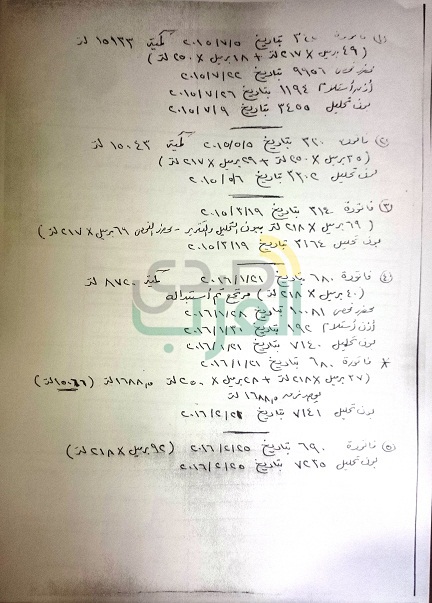 (١) فاتورة ٣٤٨ بتاريخ ٢٠١٥/٧/٥ كمية ١٥١٣٣ لتر
(٤٩ برميل × ٢١٧ لتر + ١٨ برميل × ٢٥٠ لتر)
محضر فحص ٩٩٥٦ بتاريخ ٢٠١٥/٧/٢٢
إذن استلام ١١٩٤ بتاريخ ٢٠١٥/٧/٢٦
بون تحليل ٣٤٥٥ بتاريخ ٢٠١٥/٧/٩
(٢) فاتورة ٣٢٠ بتاريخ ٢٠١٥/٥/٥ كمية ١٥٠٤٣ لتر
(٣٥ برميل × ٢٥٠ لتر + ٢٩ برميل × ٢١٧ لتر)
بون تحليل ٣٣٠٢ ٢٠١٥/٥/٦
(٣) فاتورة ٣١٤ بتاريخ ٢٠١٥/٣/١٩
(٦٩ برميل × ٢١٨ لتر ببون التحليل والتقدير - محضر الفحص ٦٩ برميل × ٢١٧ لتر)
بون تحليل ٣١٦٤ بتاريخ ٢٠١٥/٣/١٩
صدى
العرب
(٤) فاتورة ٦٨٠ بتاريخ ٢٠١٦/١/٢١ كمية ٨٧٢٠ لتر
(٤٠ برميل × ٢١٨ لتر) مرتجع تم استبداله
محضر فحص ١٠٠٨١ بتاريخ ٢٠١٦/١/٢٨
إذن استلام ١٩٢ بتاريخ ٢٠١٦/١/٣٠
بون تحليل ٧١٤٠ بتاريخ ٢٠١٦/١/٢١
* فاتورة ٦٨٠ بتاريخ ٢٠١٦/١/٢١
(٢٧ برميل × ٢١٨ لتر + ٢٨ برميل × ٢٥٠ لتر ١٦٨٨,٥ لتر)
١٦٨٨,٥ لتر
بون تحليل ٧١٤١ بتاريخ ٢٠١٦/٢/٢١
(٥) فاتورة ٦٩٠ بتاريخ ٢٠١٦/٢/٢٥ (٩٢ برميل × ٢١٨ لتر)
بون تحليل ٧٢٣٥ بتاريخ ٢٠١٦/٢/٢٥